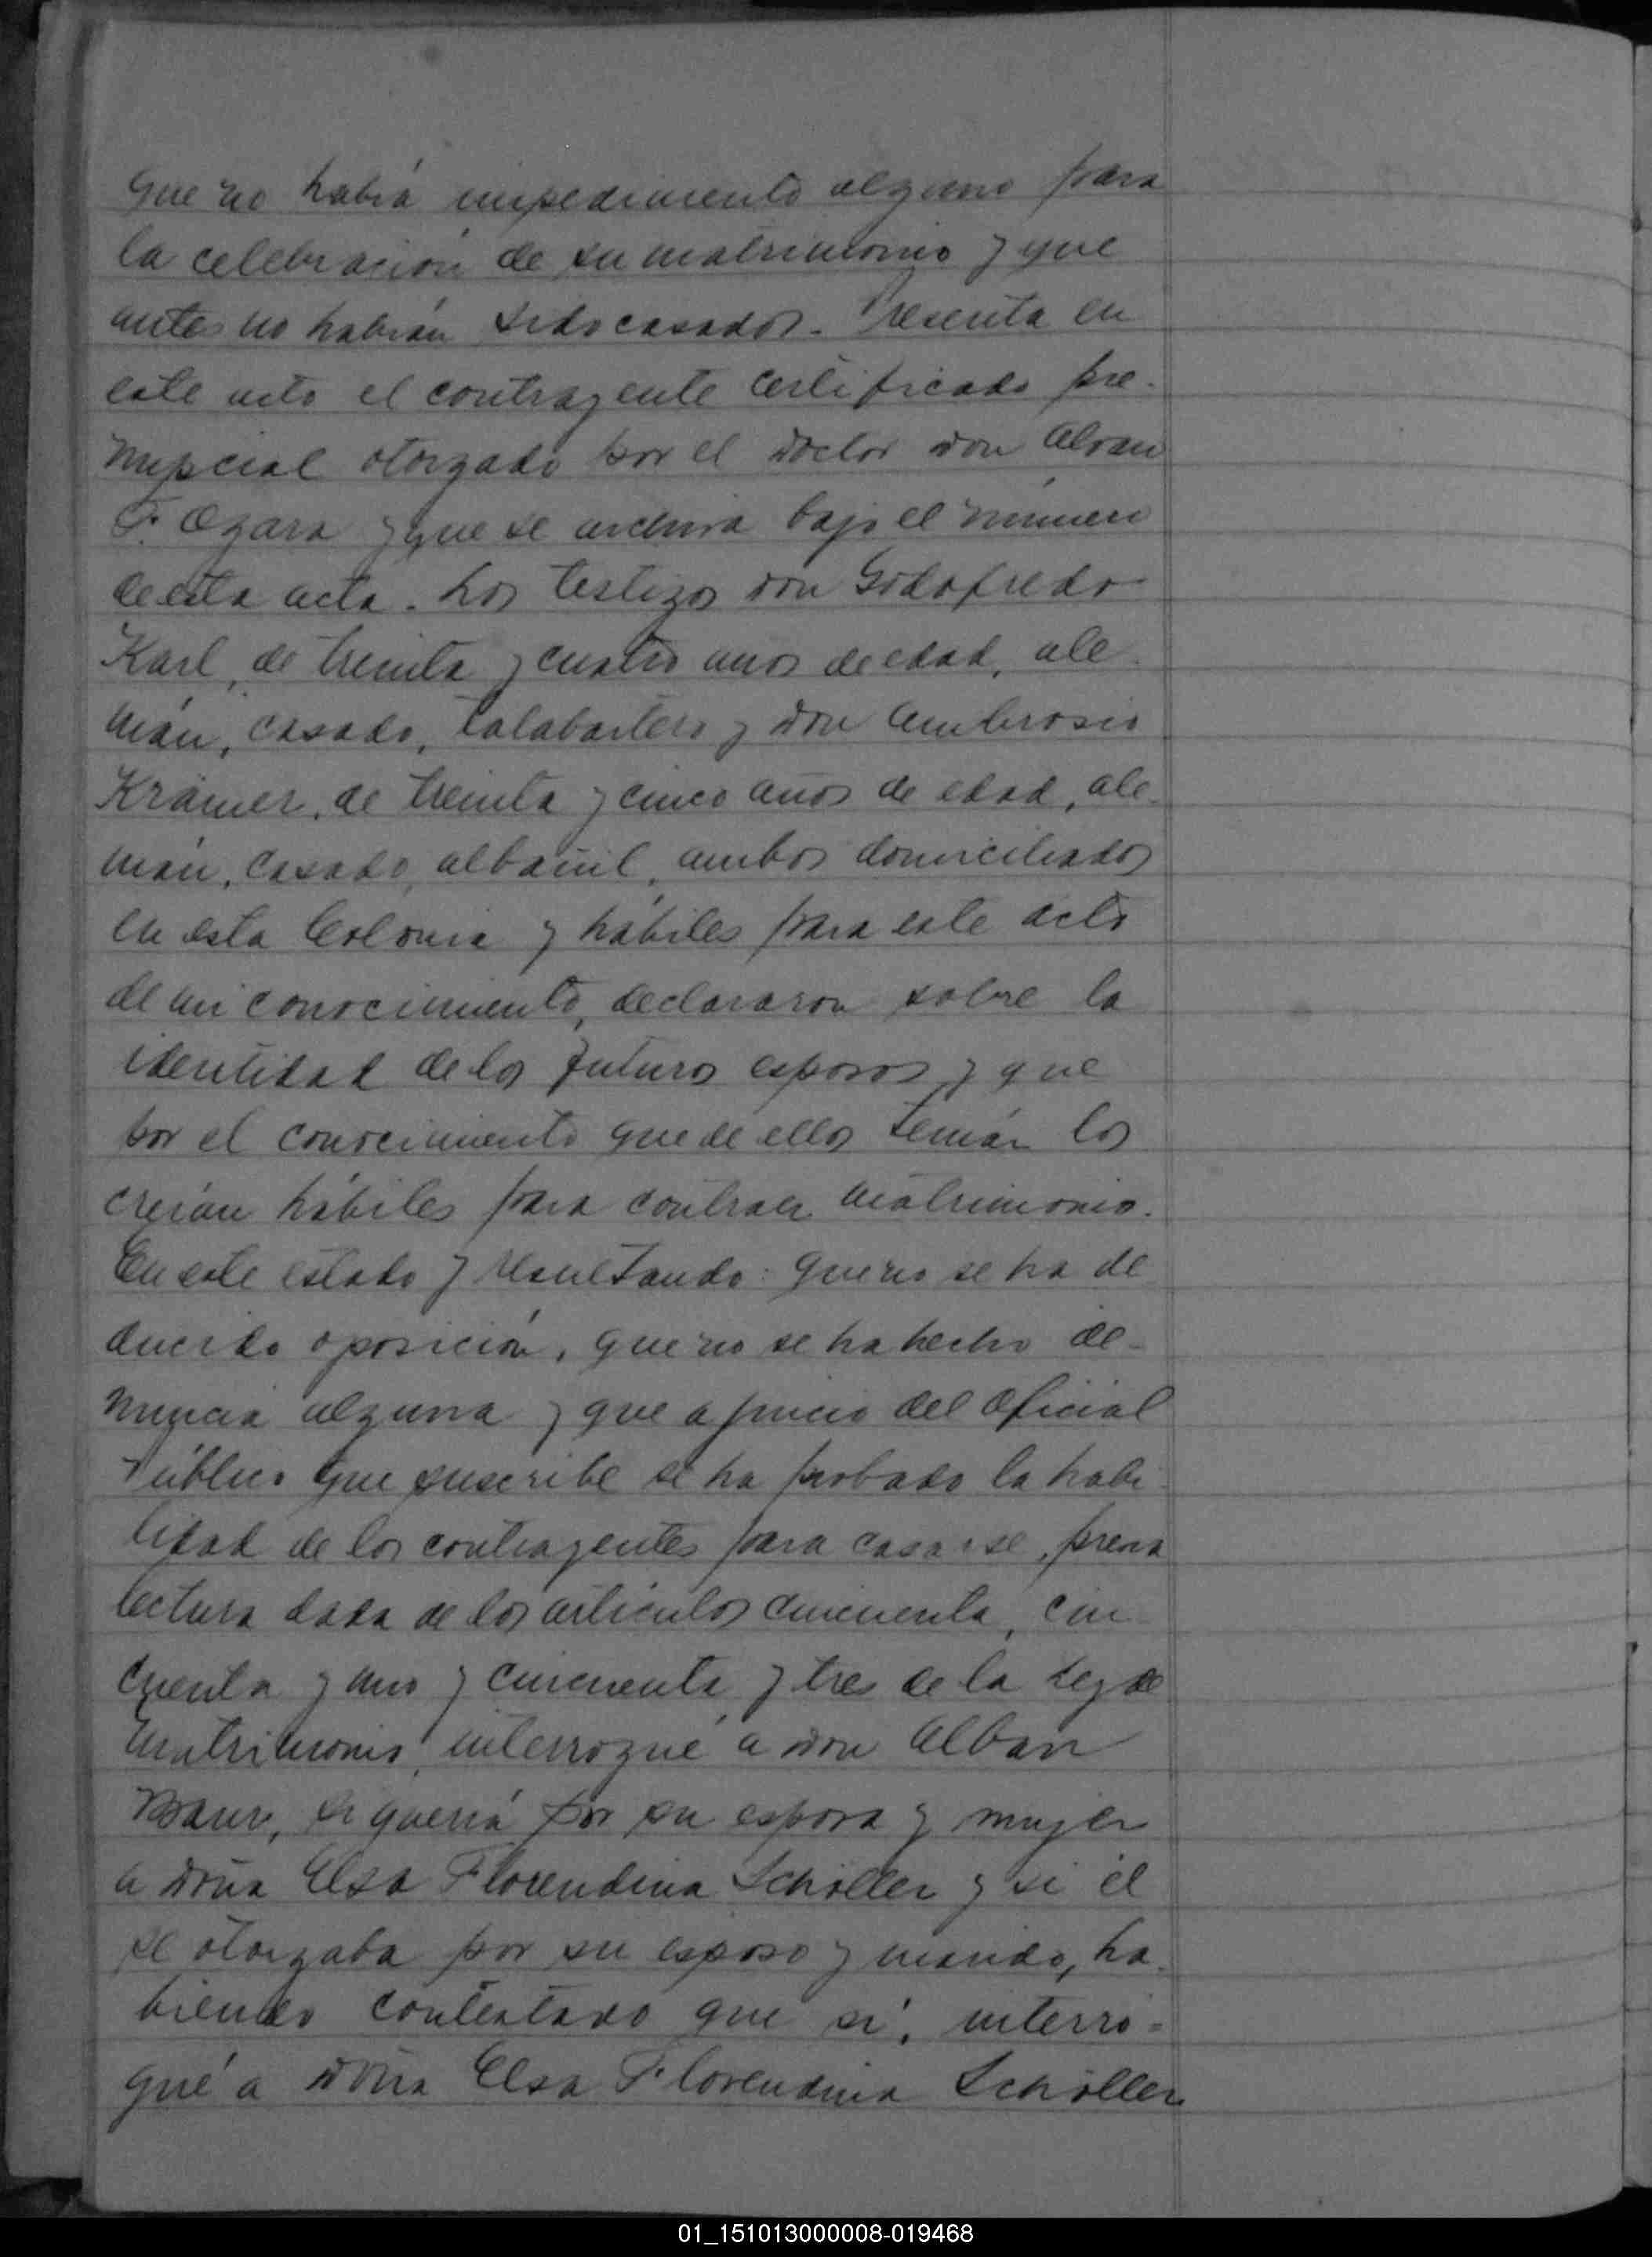 que no había impedimento alguno para
la celebración de su matrimonio y que
antes no habían sido casados. Presenta en
este acto el contrayente certificado pre-
nupcial otorgado por el doctor don Alvan
F. Ogara y que se archiva bajo el número
de esta acta. Los testigos don Godofredo
Karl, de treinta y cuatro años de edad, ale-
mán, casado, talabartero y don Ambrosio
Krämer, de treinta y cinco años de edad, ale-
mán, casado, albañil, ambos domiciliados
en esta Colonia y hábiles para este acto
de mi conocimiento, declararon sobre la
identidad de los futuros esposos y que
por el conocimiento que de ellos tenían los
creían hábiles para contraer matrimonio.
En este estado y resultando: que no se ha de
ducido oposición, que no se ha hecho de-
nuncia alguna y que a juicio del Oficial
Público que suscribe se ha probado la habi-
lidad de los contrayentes para casarse, previa
lectura dada de los artículos cincuenta, cin-
cuenta y uno y cincuenta y tres de la Ley de
matrimonio, interrogué a don Alban
Baur, si quería por su esposa y mujer
a doña Elsa Florendina Schöller y si él
se otorgaba por su esposo y marido, ha-
biendo contestado que sí, interro-
gué a doña Elsa Florendina Schöller
01_151013000008-019468